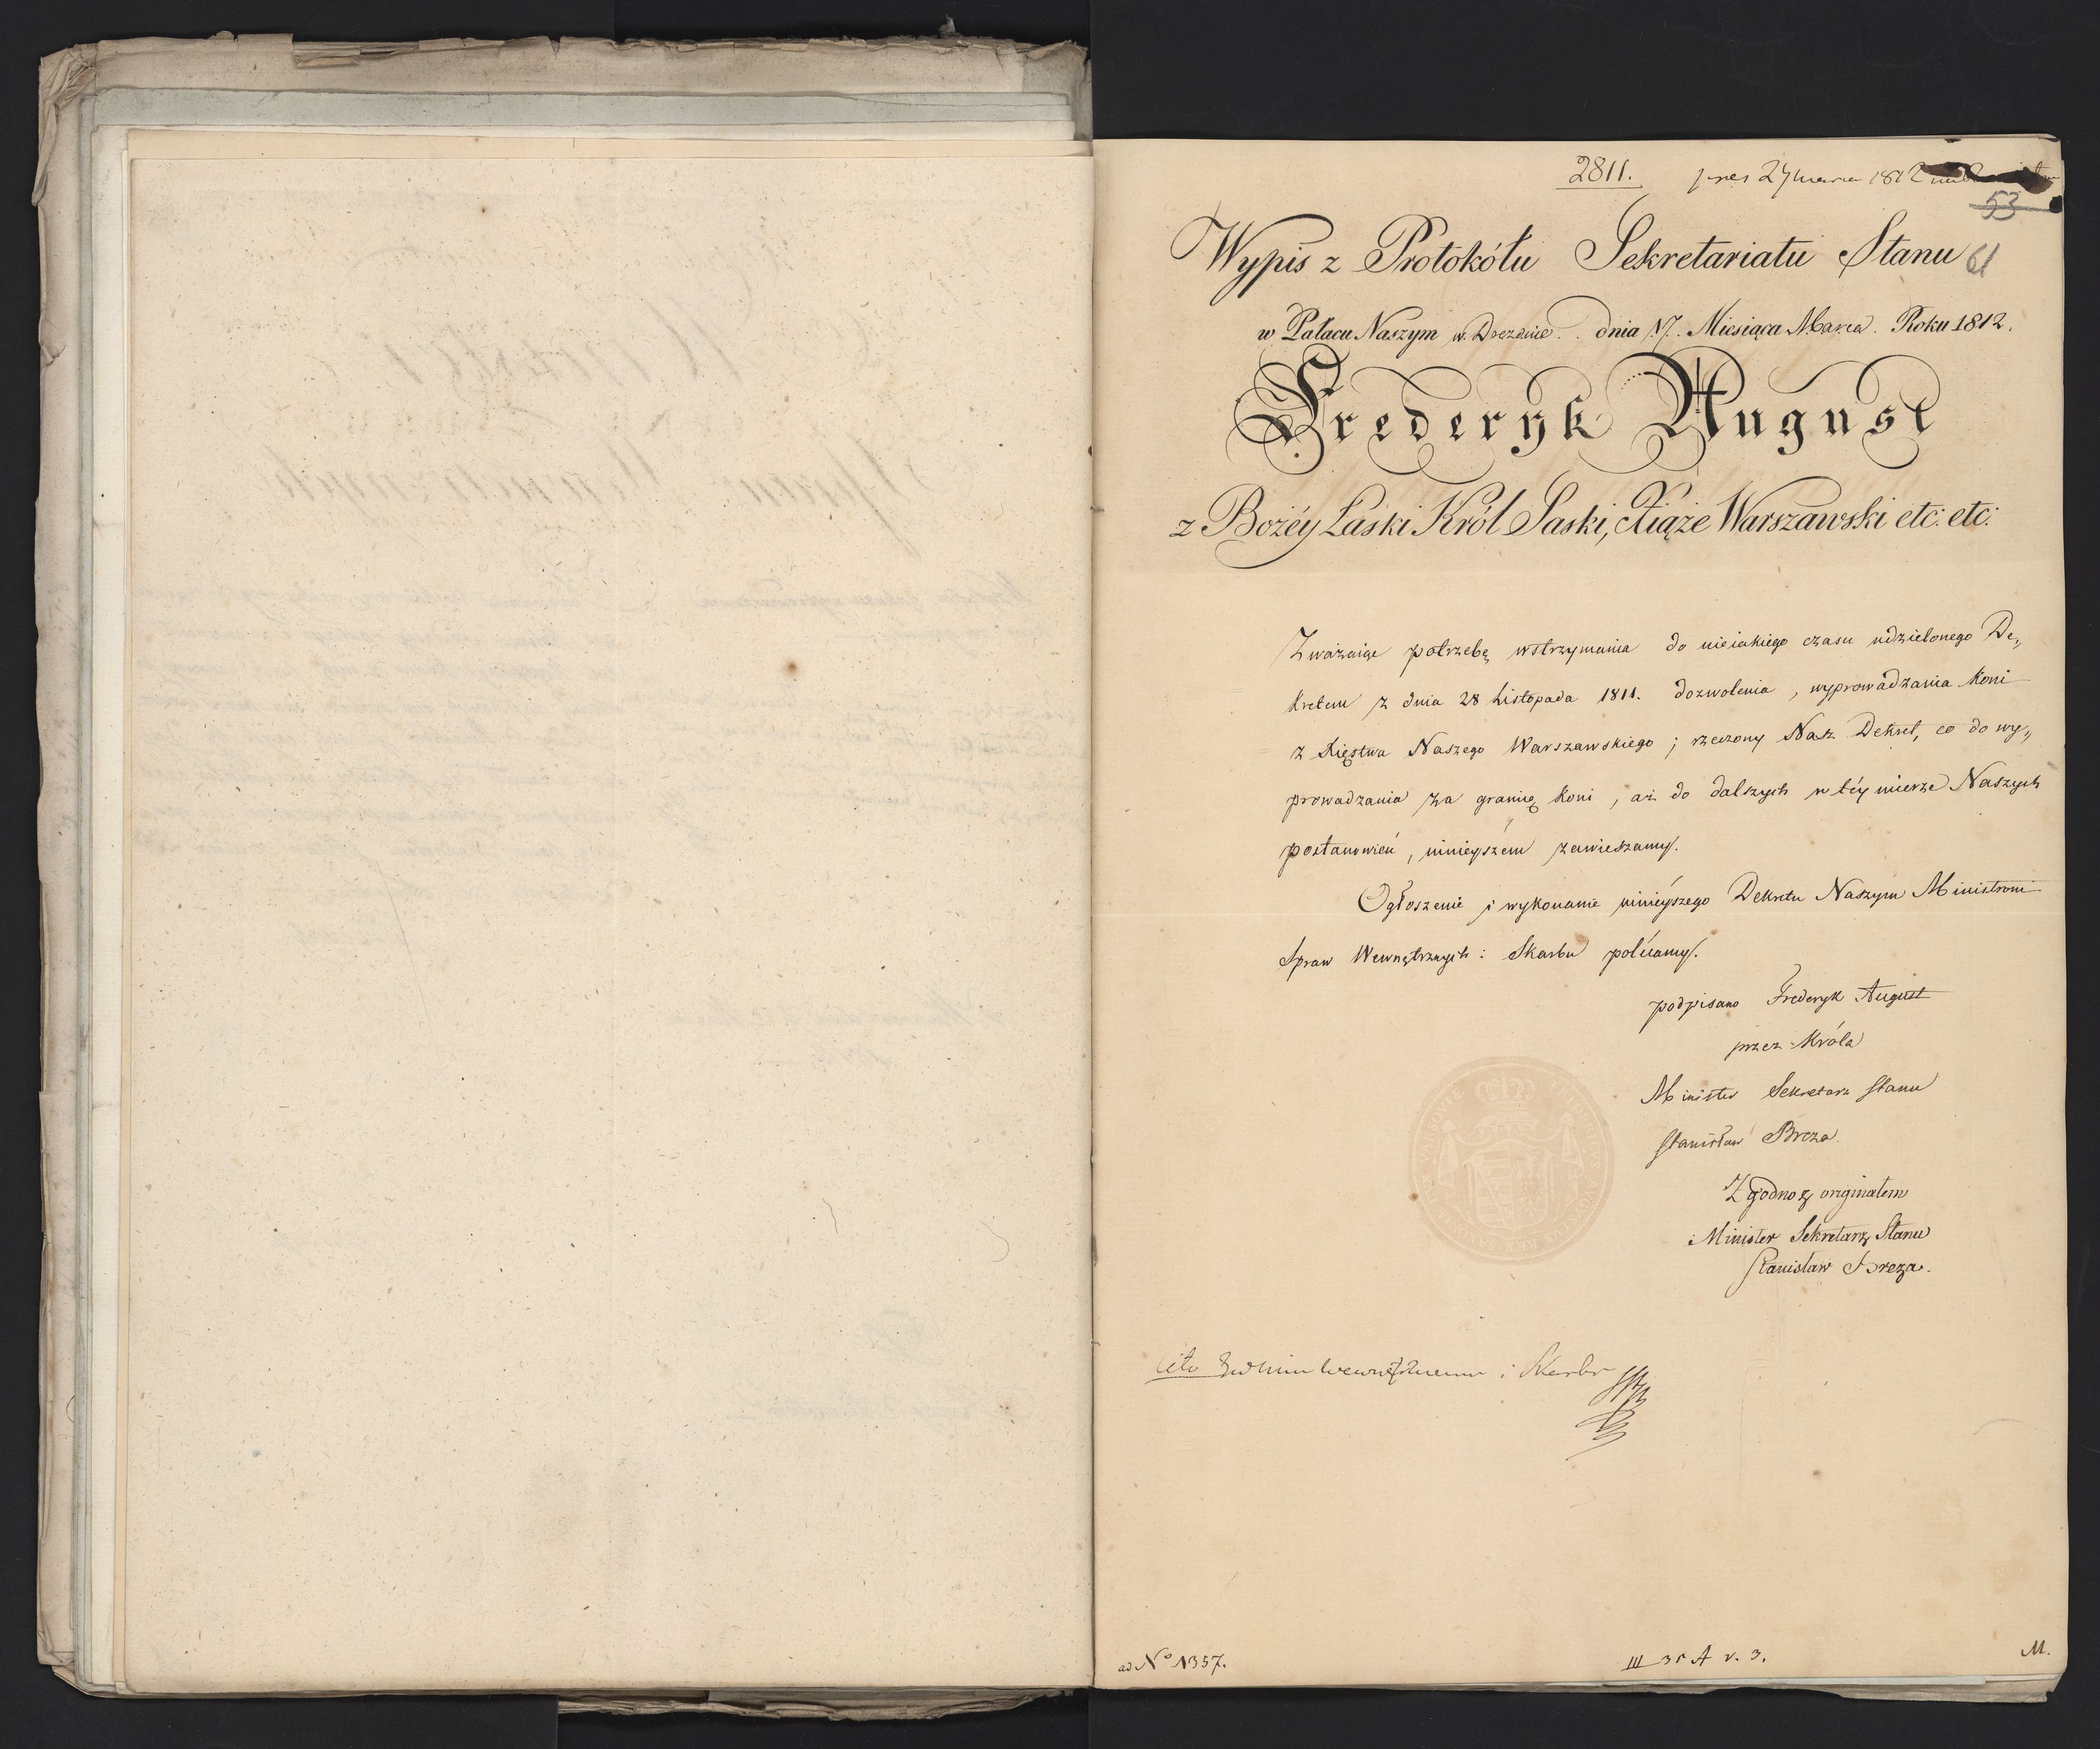 2811.
pres 27 marca 1812
53
Wypis z Protokółu Sekretariatu Stanu 61
w Pałacu Naszym w Dreznie. dnia 17. Miesiąca Marca. Roku 1812.
Frederyk August
z Bożéy Łaski Król Saski, Xiąże Warszawski etc: etc:
Zważaiąc potrzebę wstrzymania do nieiakiego czasu udzielonego De„
kretem z dnia 28 Listopada 1811. dozwolenia, wyprowadzania Koni
z Xięstwa Naszego Warszawskiego; rzeczony Nasz Dekret, co do wy„
prowadzania za granicę Koni, aż do dalszych w téy mierze Naszych
postanowień, ninieyszém zawieszamy.
Ogłoszenie i wykonanie ninieyszego Dekretu Naszym Ministrom
Spraw Wewnętrznych i Skarbu polécamy.
podpisano Frederyk August
przez Króla
Minister Sekretarz Stanu
Stanisław Breza.
Zgodno z originałem
Minister Sekretarz Stanu
Stanisław Breza.
Cito Wewnętrznemu i Skarbu
ad No 1357.
III 35 A v. 3.
M.